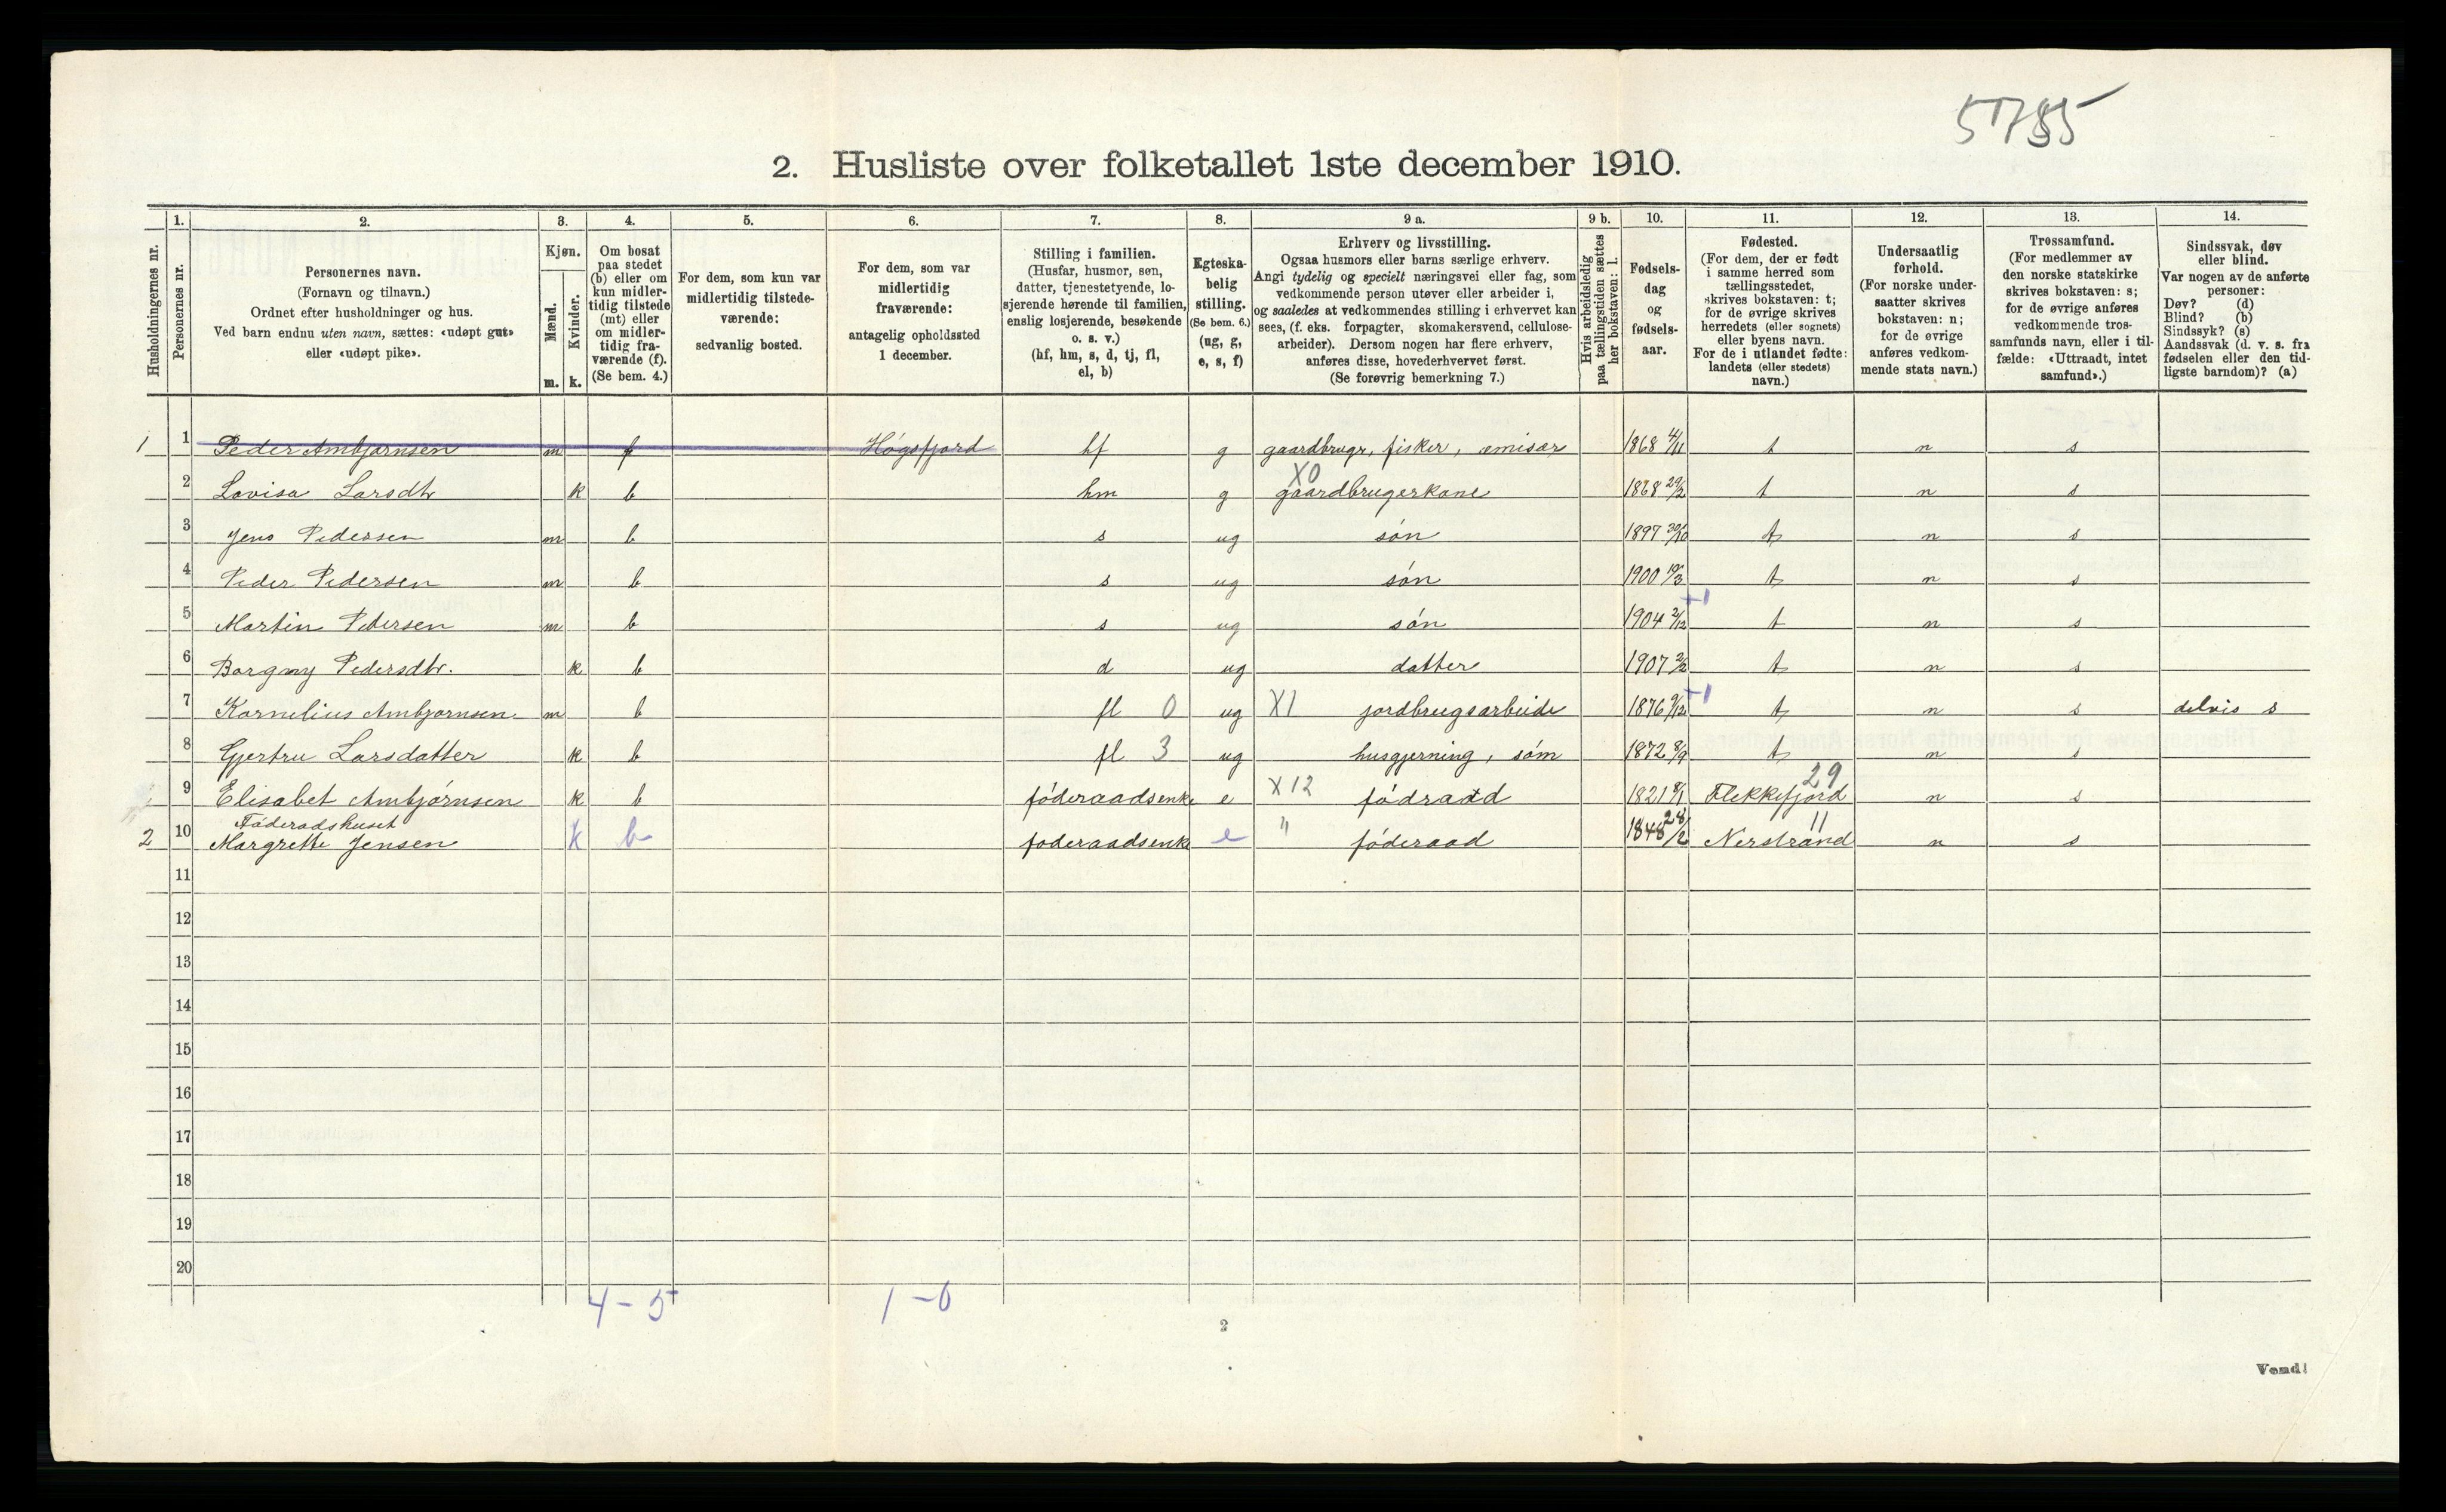 5785
2. Husliste over folketallet 1ste december 1910.
Husholdningernes nr.
1. Personernes nr.
2. Personernes navn. (Fornavn og tilnavn.) Ordnet efter husholdninger og hus. Ved barn endnu uten navn, sættes: «udøpt gut» eller «udøpt pike».
3. Kjøn. Mænd. m. Kvinder. k.
4. Om bosat paa stedet (b) eller om kun midlertidig tilstede (mt) eller om midlertidig fraværende (f). (Se bem. 4.)
5. For dem, som kun var midlertidig tilstedeværende: sedvanlig bosted.
6. For dem, som var midlertidig fraværende: antagelig opholdssted 1 december.
7. Stilling i familien. (Husfar, husmor, søn, datter, tjenestetyende, losjerende hørende til familien, enslig losjerende, besøkende o. s. v.) (hf, hm, s, d, tj, fl, el, b)
8. Egteskabelig stilling. (Se bem. 6.) (ug, g, e, s, f)
9 a. Erhverv og livsstilling. Ogsaa husmors eller barns særlige erhverv. Angi tydelig og specielt næringsvei eller fag, som vedkommende person utøver eller arbeider i, og saaledes at vedkommendes stilling i erhvervet kan sees, (f. eks. forpagter, skomakersvend, cellulosearbeider). Dersom nogen har flere erhverv, anføres disse, hovederhvervet først. (Se forøvrig bemerkning 7.)
9 b. Hvis arbeidsledig paa tællingstiden sættes her bokstaven: l.
10. Fødselsdag og fødselsaar.
11. Fødested. (For dem, der er født i samme herred som tællingsstedet, skrives bokstaven: t; for de øvrige skrives herredets (eller sognets) eller byens navn. For de i utlandet fødte: landets (eller stedets) navn.)
12. Undersaatlig forhold. (For norske undersaatter skrives bokstaven: n; for de øvrige anføres vedkommende stats navn.)
13. Trossamfund. (For medlemmer av den norske statskirke skrives bokstaven: s; for de øvrige anføres vedkommende trossamfunds navn, eller i tilfælde: «Uttraadt, intet samfund».)
14. Sindssvak, døv eller blind. Var nogen av de anførte personer: Døv? (d) Blind? (b) Sindssyk? (s) Aandssvak (d. v. s. fra fødselen eller den tidligste barndom)? (a)
1 1 Peder Ambjørnsen m f Høgsfjord hf g gaardbrugr, fisker, emisær 1868 4/11 t n s
2 Lovisa Larsdtr k b hm g X0 gaardbrugerkone 1868 29/2 t n s
3 Jens Pedersen m b s ug søn 1897 30/10 t n s
4 Peder Pedersen m b s ug søn 1900 19/3 t n s
5 Martin Pedersen m b s ug søn 1904 2/12 +1 t n s
6 Borgny Pedersdtr. k b d ug datter 1907 2/2 t n s
7 Kornelius Ambjørnsen m b fl 0 ug X1 jordbrugsarbeide 1876 9/12 +1 t n s delvis s
8 Gjertru Larsdatter k b fl 3 ug husgjerning, søm 1872 8/9 t n s
9 Elisabet Ambjørnsen k b føderaadsenke e X12 fødraad 1821 8/1 Flekkefjord 29 n s
Føderadshuset
2 10 Margrette Jensen k b føderaadsenke e " føderaad 1848 28/2 Nerstrand 11 n s
11
12
13
14
15
16
17
18
19
20
4 - 5 1 - 0
2
Vend!